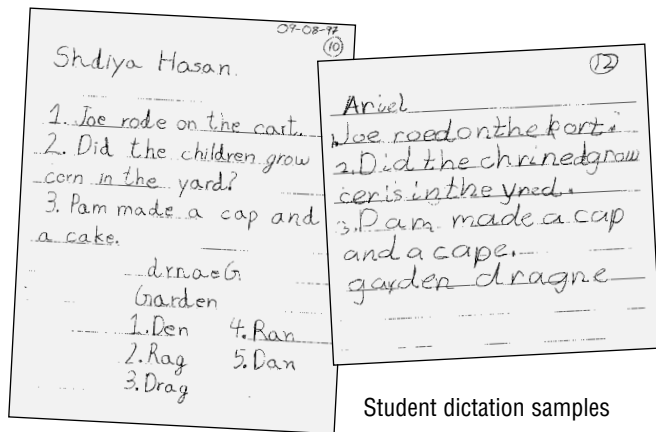 09-08-97
10
Shdiya Hasan
1. Joe rode on the cart.
2. Did the children grow
corn in the yard?
3. Pam made a cap and
a cake.
drnaeG
Garden
1. Den 4. Ran
2. Rag 5. Dan
3. Drag
12
Ariel
1. Joe roed on the kort.
2. Did the chrined grow
ceris in the yred.
3. Pam made a cap
and a cape.
garden dragne
Student dictation samples